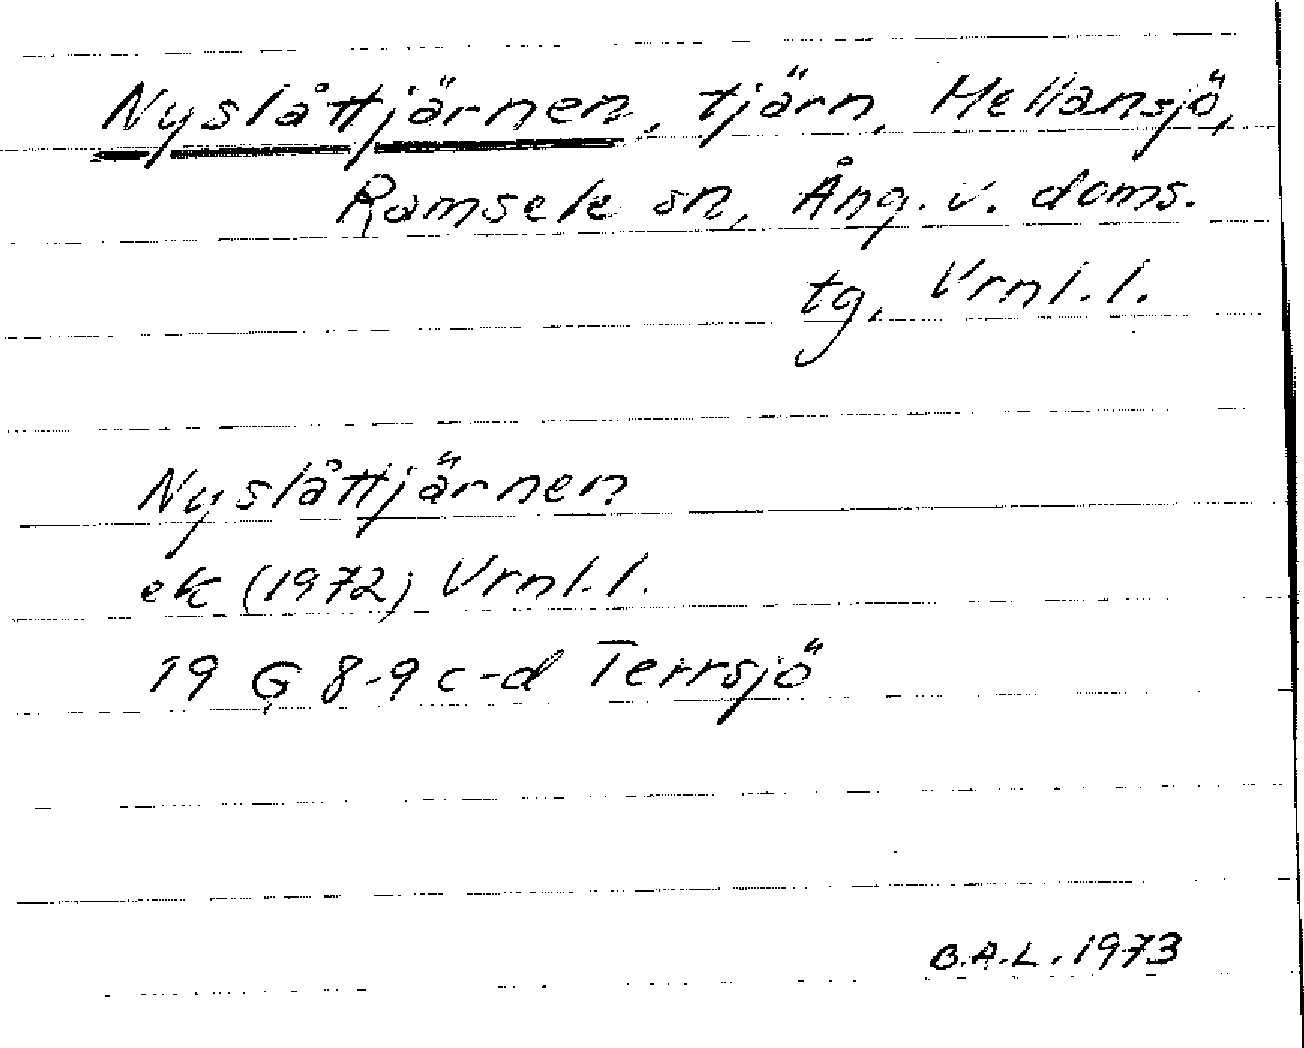 Nyslåttjärnen, tjärn, Mellansjö,
Ramsele sn, Ång. v. doms.
tg, Vrnl. l.
Nyslåttjärnen
ek (1972) Vrnl. l.
19 G 8-9 c-d Terrsjö
B.A.L. 1973